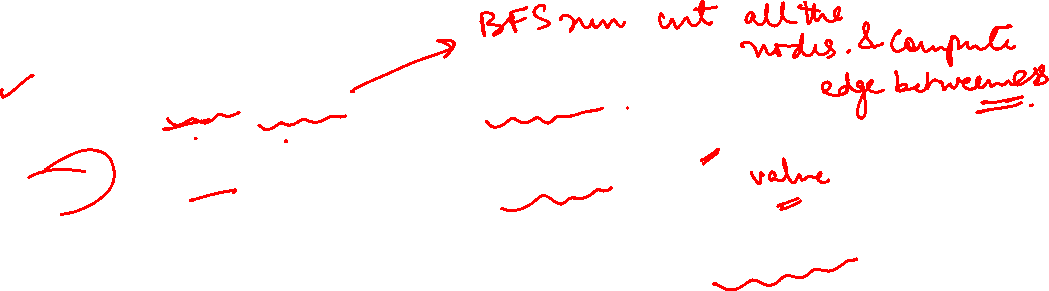 BFS run wrt all the
nodes. & compute
edge betweenness.
value